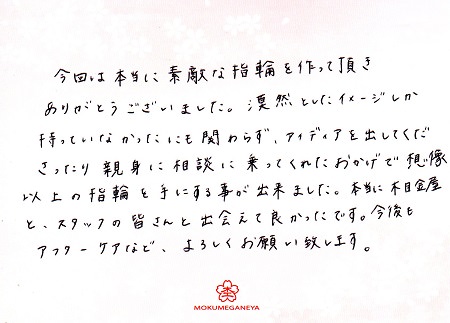 今回は本当に素敵な指輪を作って頂き
ありがとうございました。漠然としたイメージしか
持っていなかったにも関わらず、アイディアを出してくだ
さったり親身に相談に乗ってくれたおかげで想像
以上の指輪を手にする事が出来ました。本当に杢目金屋
と、スタッフの皆さんと出会えて良かったです。今後も
アフターケアなど、よろしくお願い致します。
MOKUMEGANEYA